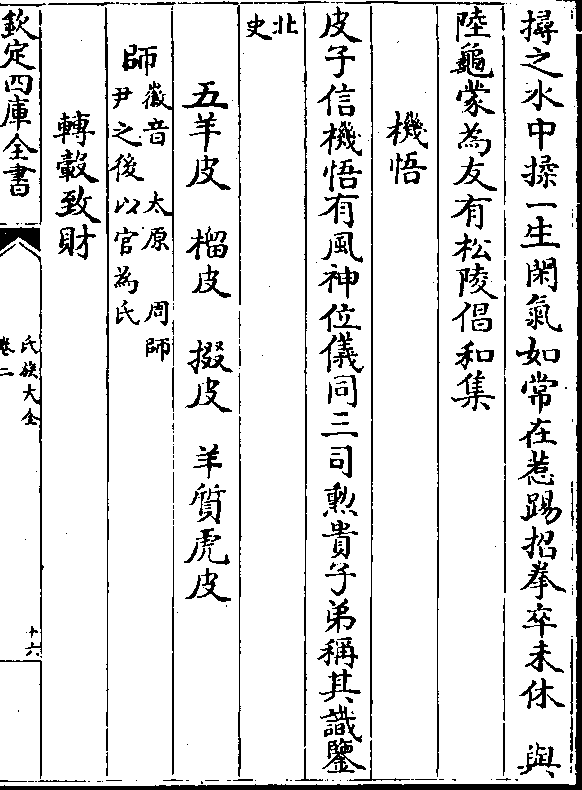 撏之水中揉一生閑氣如常在惹踢招拳卒未休　與
陸龜蒙為友有松陵倡和集
機悟
皮子信機悟有風神位儀同三司勲貴子弟稱其識鑒
北史
五羊皮　榴皮　掇皮　羊質虎皮
師徵音　太原　周師
尹之後以官為氏
轉轂致財
欽定四庫全書
氏族大全
卷二
十六